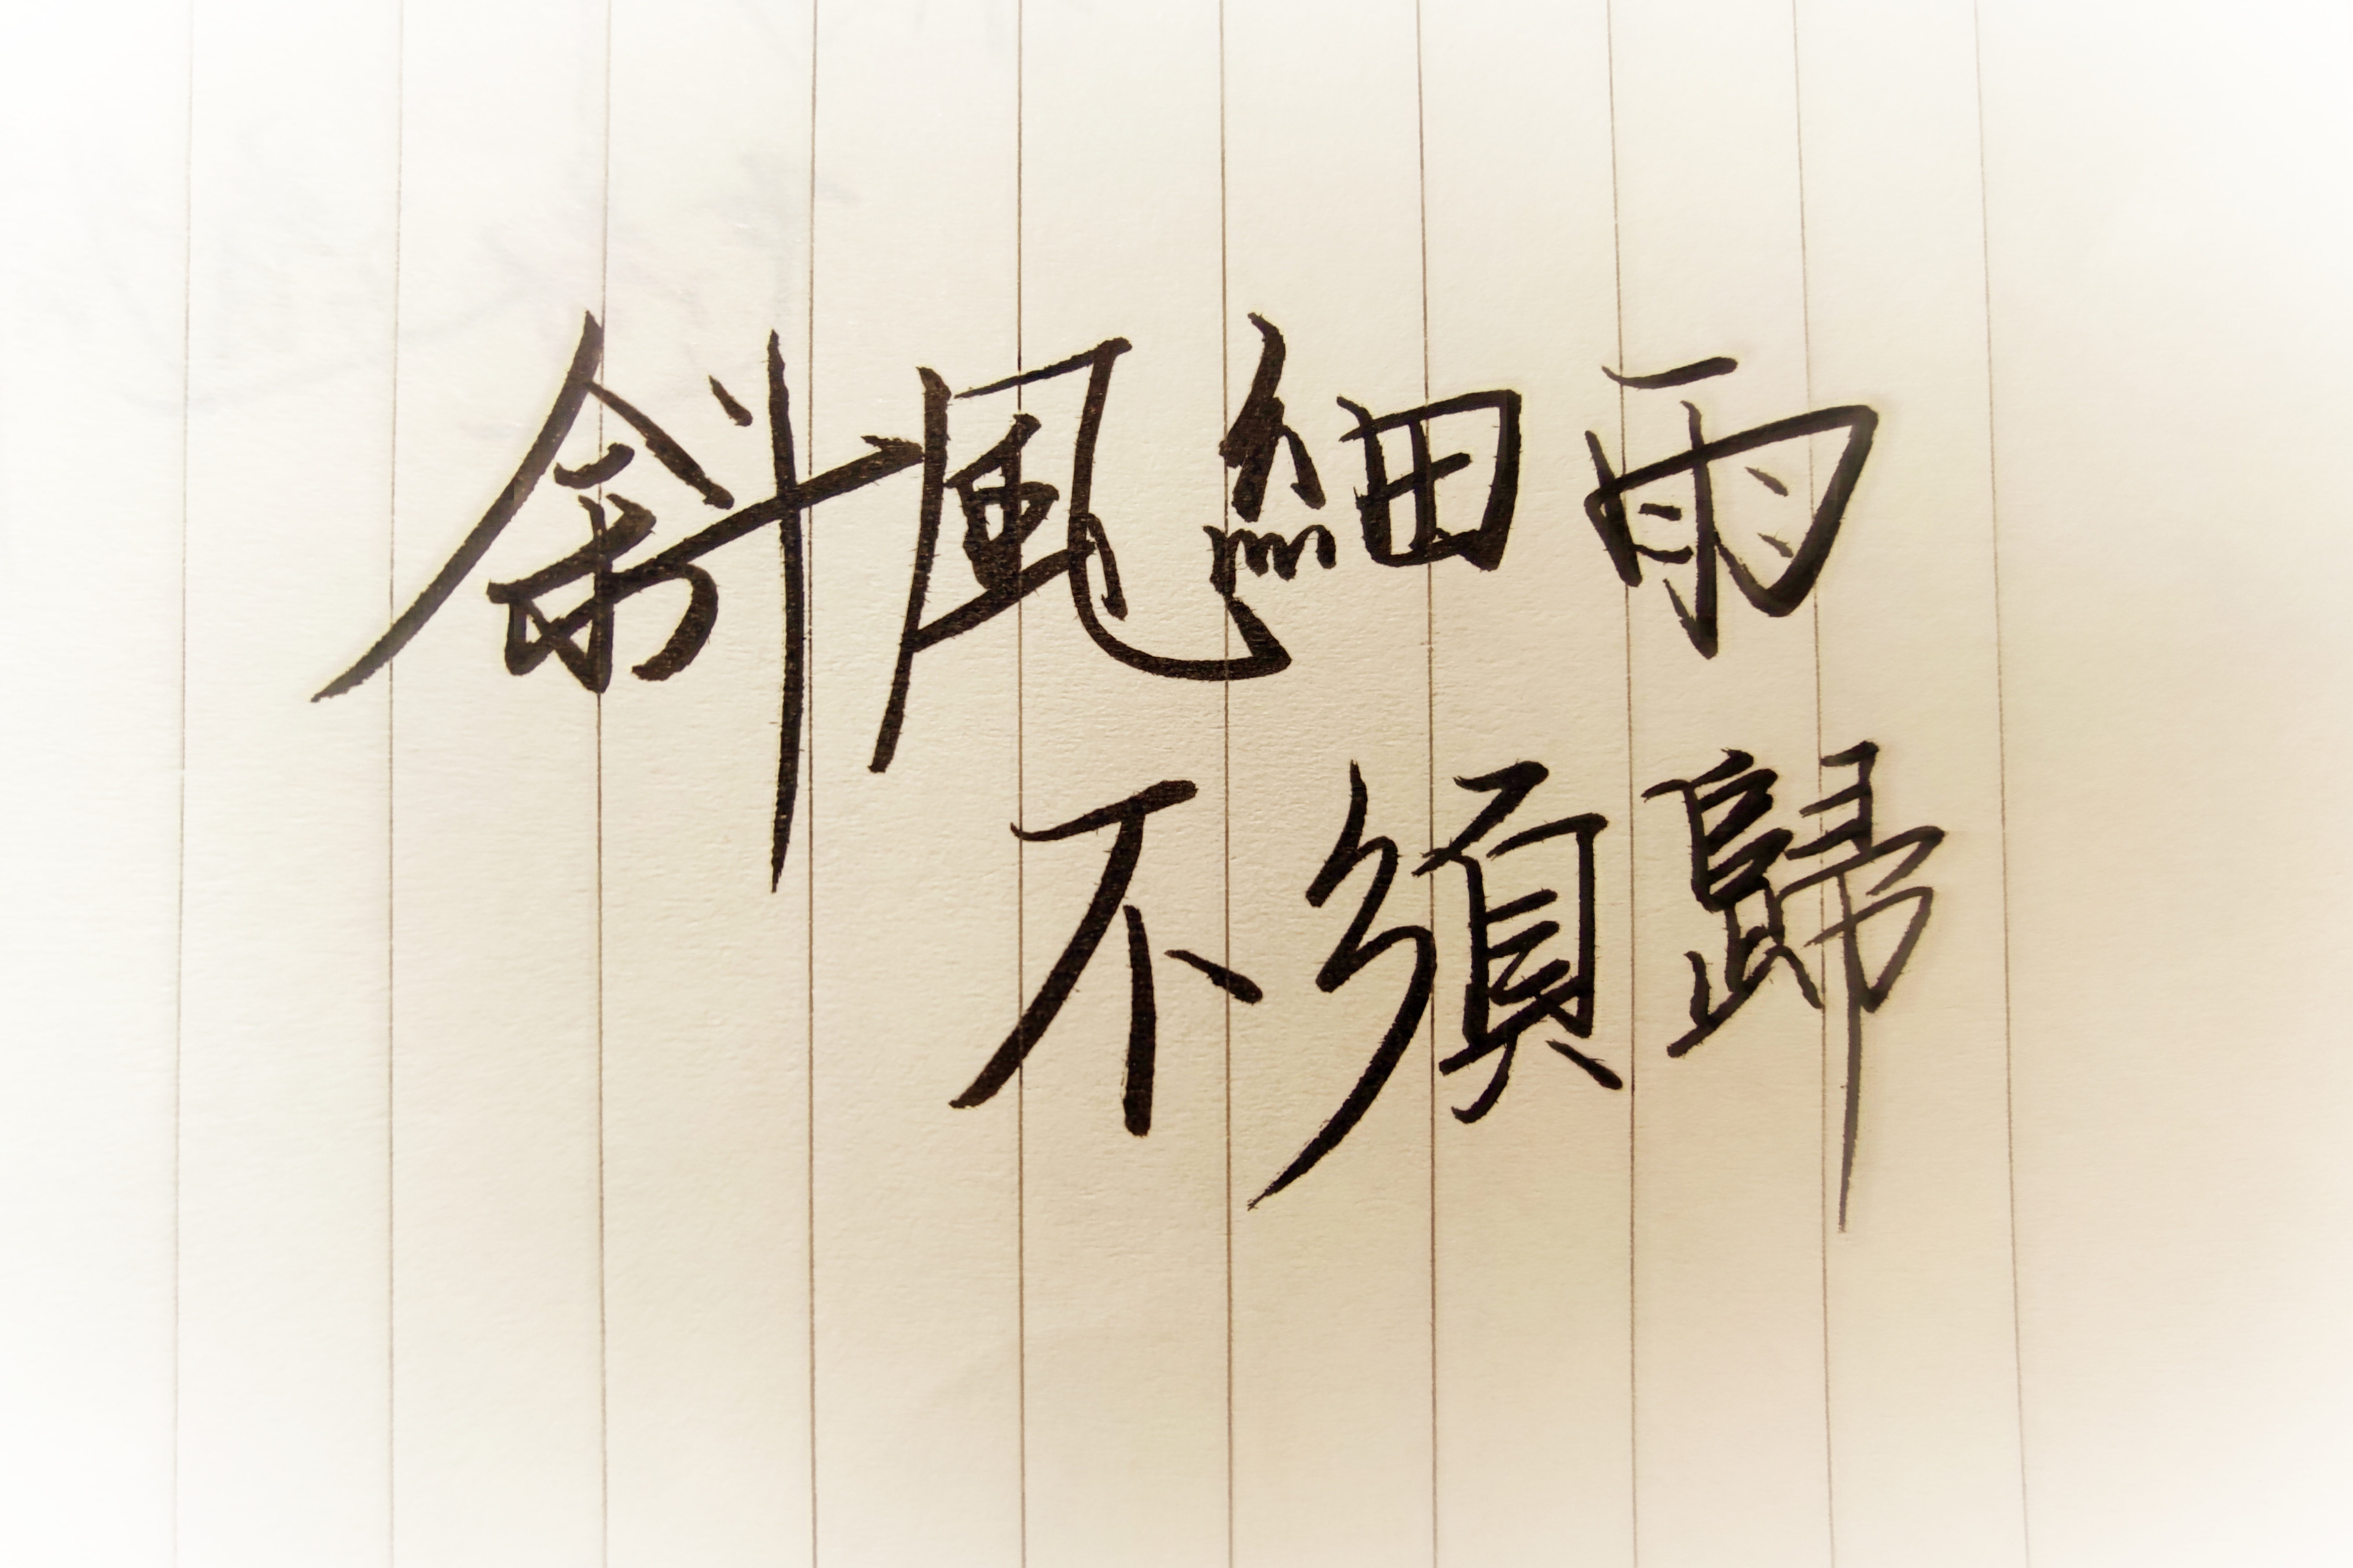 斜風細雨
不須歸